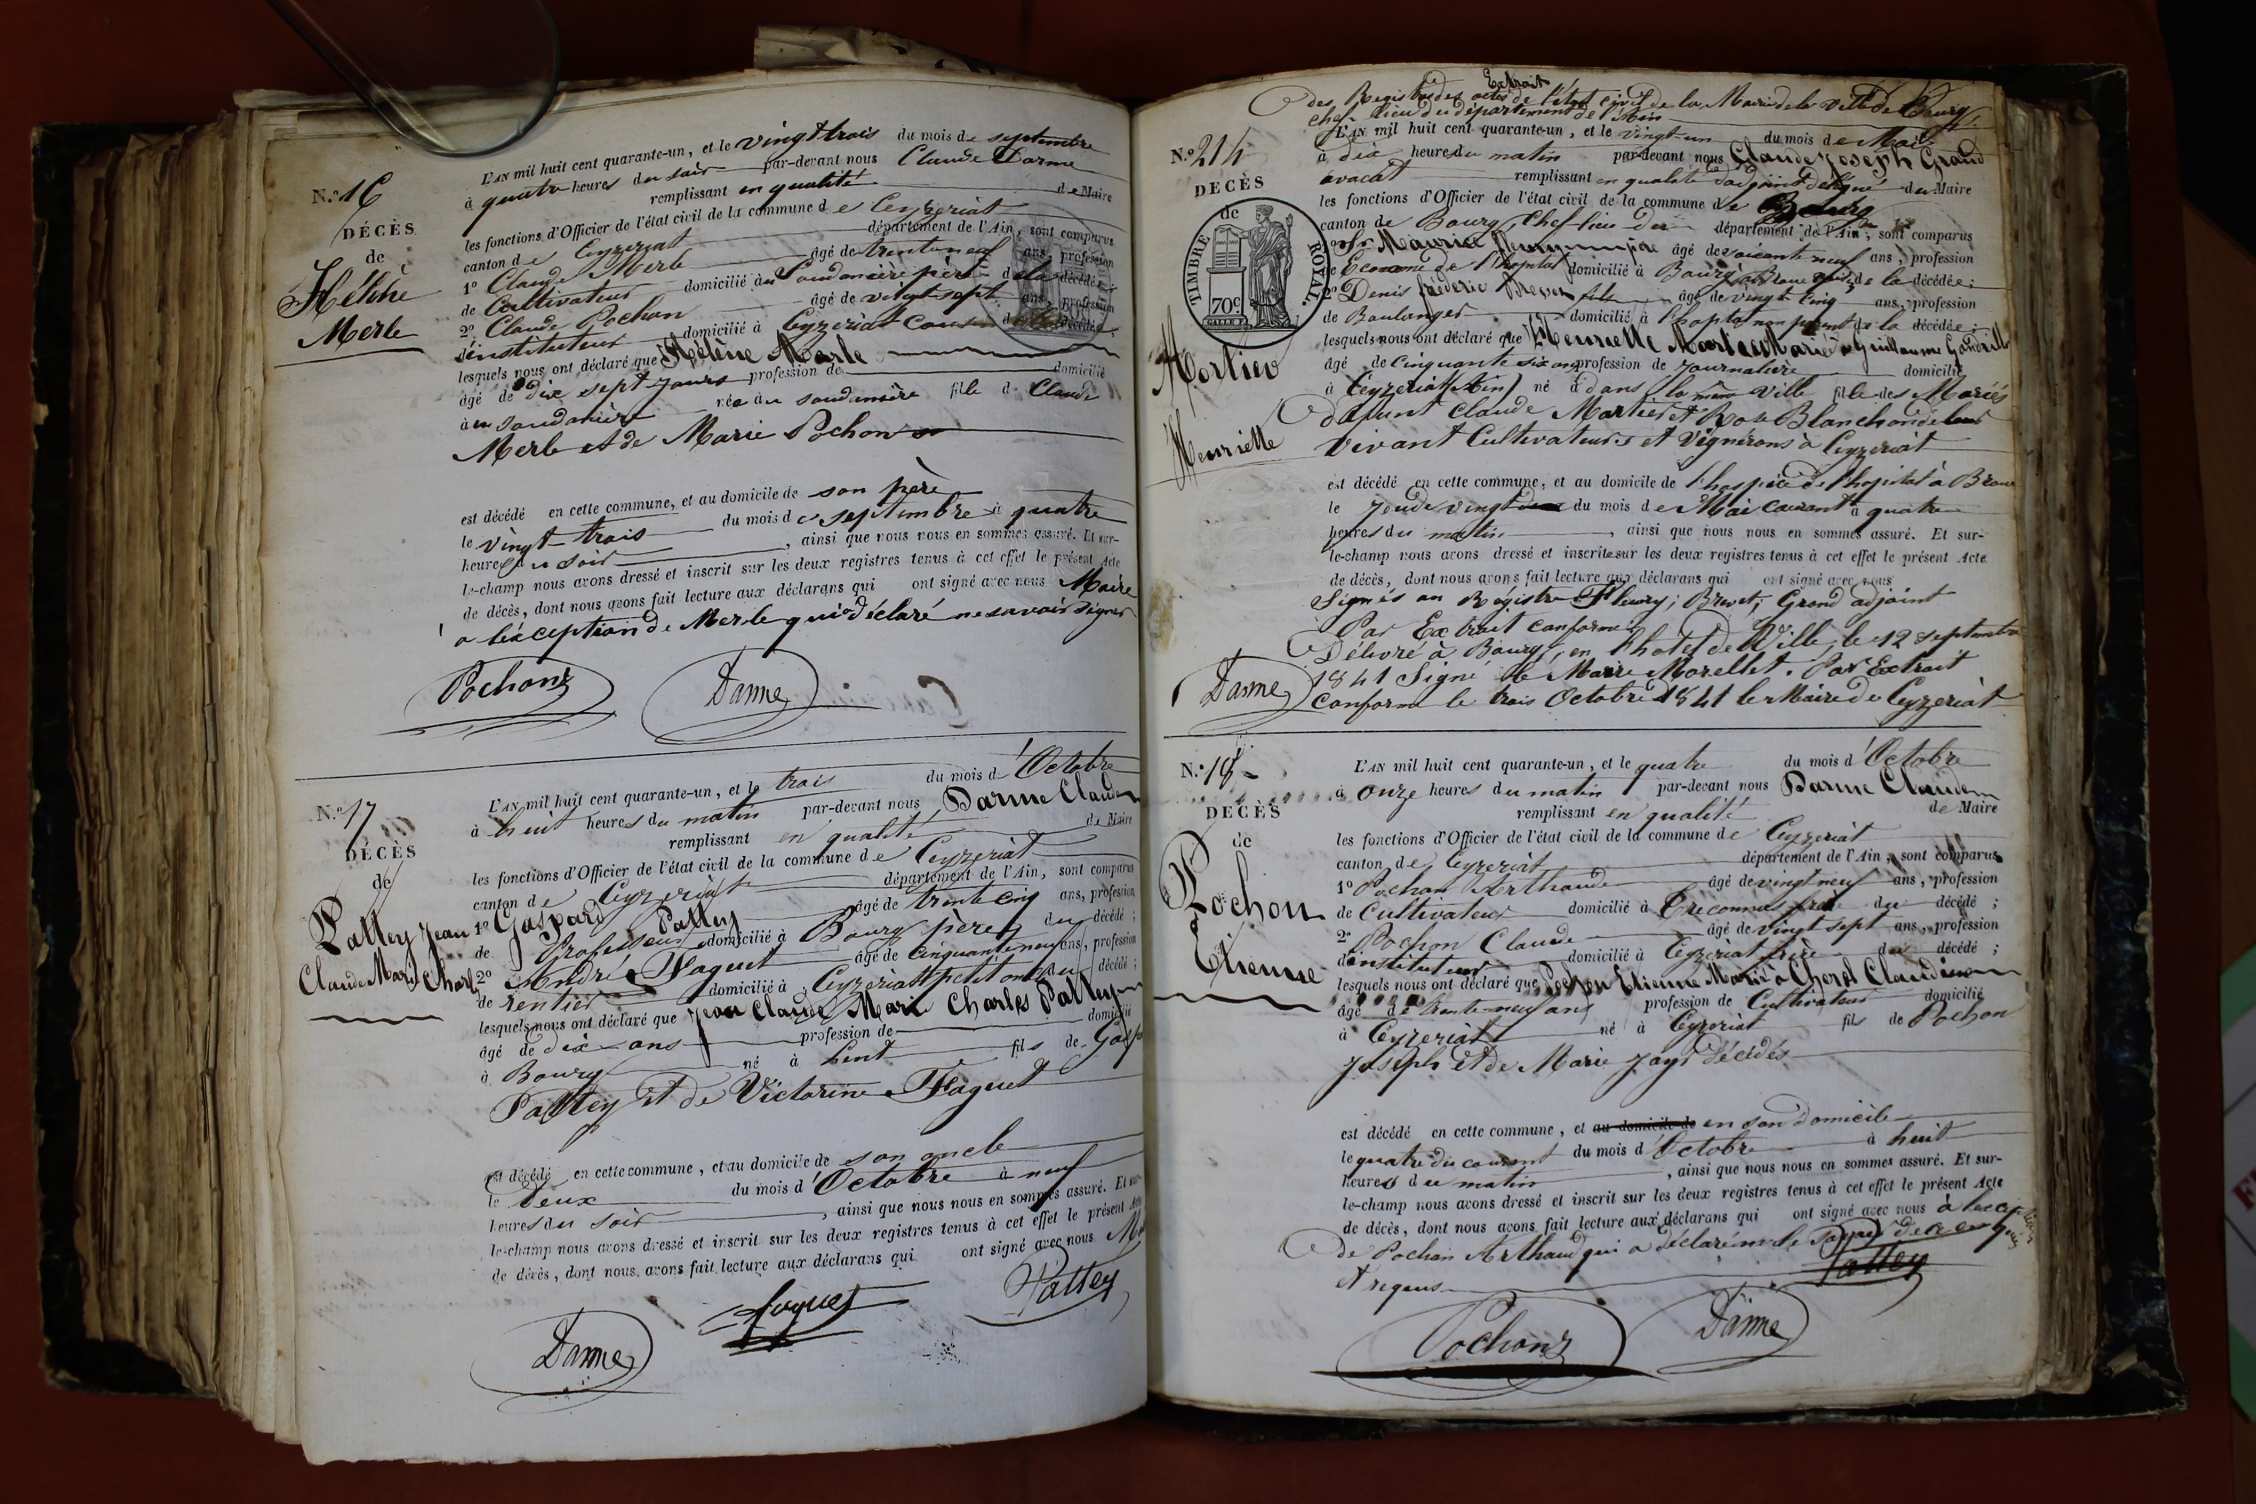 N.º 16
DÉCÈS
de
Hélène
Merle
L'AN mil huit cent quarante-un, et le vingt trois du mois de septembre
à quatre heures du soir par-devant nous Claude Darme
remplissant en qualité de Maire
les fonctions d'Officier de l'état civil de la commune de Ceyzeriat
canton de Ceyzeriat département de l'Ain, sont comparus
1º Claude Merle âgé de trente neuf ans, profession
de Cultivateur domicilié au Soudanière père de la décédée
2º Claude Pochon âgé de vingt sept ans, profession
d'instituteur domicilié à Ceyzeriat cousin décédée
lesquels nous ont déclaré que Hélène Merle
âgé de dix sept jours profession de domicilié
à en Soudanière née au soudanière fille de Claude
Merle et de Marie Pochon
est décédé en cette commune, et au domicile de son père
le vingt trois du mois de septembre à quatre
heures du soir, ainsi que nous nous en sommes assuré. Et sur-
le-champ nous avons dressé et inscrit sur les deux registres tenus à cet effet le présent Acte
de décès, dont nous avons fait lecture aux déclarans qui ont signé avec nous Maire
a l'éxception de Merle qui a déclaré ne savoir signer
Pochon Darme
N.º 17
DÉCÈS
de
Pattey Jean
Claude Marie Charles
L'AN mil huit cent quarante-un, et le trois du mois d'Octobre
à huit heures du matin par-devant nous Darme Claude
remplissant en qualité de Maire
les fonctions d'Officier de l'état civil de la commune de Ceyzeriat
canton de Ceyzeriat département de l'Ain, sont comparus
1º Gaspard Pattey âgé de trente cinq ans, profession
de Professeur domicilié à Bourg père du décédé;
2º André Faguet âgé de cinquante neuf ans, profession
de rentier domicilié à Ceyzeriat du décédé;
lesquels nous ont déclaré que Jean Claude Marie Charles Pattey
âgé de dix ans profession de domicilié
à Bourg né à fils de
Pattey et de Victorine Faguet
est décédé en cette commune, et au domicile de son oncle
le deux du mois d'Octobre à neuf
heures du soir, ainsi que nous nous en sommes assuré. Et sur-
le-champ nous avons dressé et inscrit sur les deux registres tenus à cet effet le présent Acte
de décès, dont nous avons fait lecture aux déclarans qui ont signé avec nous
Darme Faguet Pattey
Extrait
des Registres des actes de l'état civil de la Mairie de la ville de Bourg
chef lieu du département de l'Ain
N.º 214
DECÈS
de
TIMBRE ROYAL.
70c.
Mortier
Henriette
L'AN mil huit cent quarante-un, et le vingt-un du mois de Mai
à dix heures du matin par-devant nous Claude Joseph Grand
avocat remplissant en qualité d'adjoint délégué du Maire
les fonctions d'Officier de l'état civil de la commune de Bourg
canton de Bourg, chef-lieu du département de l'Ain, sont comparus
Maurice âgé de soixante neuf ans, profession
de Econome de l'hopital domicilié à Bourg de la décédée;
2º Denis frédéric Brevet fils âgé de vingt cinq ans, profession
de Boulanger domicilié à l'hopital non parent de la décédée;
lesquels nous ont déclaré que Henriette Mortier Mariée à Guillaume
âgé de cinquante six ans profession de Journalière domicilié
à Ceyzeriat (Ain) né à dans la même ville fille des Mariés
défunt Claude Mortier et Blanchon de leur
vivant Cultivateurs et Vignerons à Ceyzeriat
est décédé en cette commune, et au domicile de l'hospice de l'hopital à Brou
le Jeudi vingt du mois de Mai courant à quatre
heures du matin, ainsi que nous nous en sommes assuré. Et sur-
le-champ nous avons dressé et inscrit sur les deux registres tenus à cet effet le présent Acte
de décès, dont nous avons fait lecture aux déclarans qui ont signé avec nous
Signés au Régistre Fleury; Brevet; Grand adjoint
Par Extrait conforme
Délivré à Bourg, en l'hotel de Ville, le 12 septembre
1841 Signé le Maire Morellet. Par Extrait
Conforme le trois Octobre 1841 le Maire de Ceyzeriat
Darme
N.º 18
DÉCÈS
de
Pochon
Etienne
L'AN mil huit cent quarante-un, et le quatre du mois d'Octobre
à onze heures du matin par-devant nous Darme Claude
remplissant en qualité de Maire
les fonctions d'Officier de l'état civil de la commune de Ceyzeriat
canton de Ceyzeriat département de l'Ain, sont comparus
1º Pochon Arthaud âgé de vingt neuf ans, profession
de Cultivateur domicilié à Treconnas frère du décédé;
2º Pochon Claude âgé de vingt sept ans, profession
d'instituteur domicilié à Ceyzeriat frère du décédé;
lesquels nous ont déclaré que Pochon Etienne Marié à Cherel Claudine
âgé de trente-neuf ans profession de Cultivateur domicilié
à Ceyzeriat né à Ceyzeriat fils de Pochon
Joseph et de Marie Jayr décédés
est décédé en cette commune, et au domicile de en son domicile
le quatre du courant du mois d'Octobre à huit
heures du matin, ainsi que nous nous en sommes assuré. Et sur-
le-champ nous avons dressé et inscrit sur les deux registres tenus à cet effet le présent Acte
de décès, dont nous avons fait lecture aux déclarans qui ont signé avec nous à l'exception
de Pochon Arthaud qui a déclaré ne le savoir de ce enquis
et requis Pattey
Pochon Darme